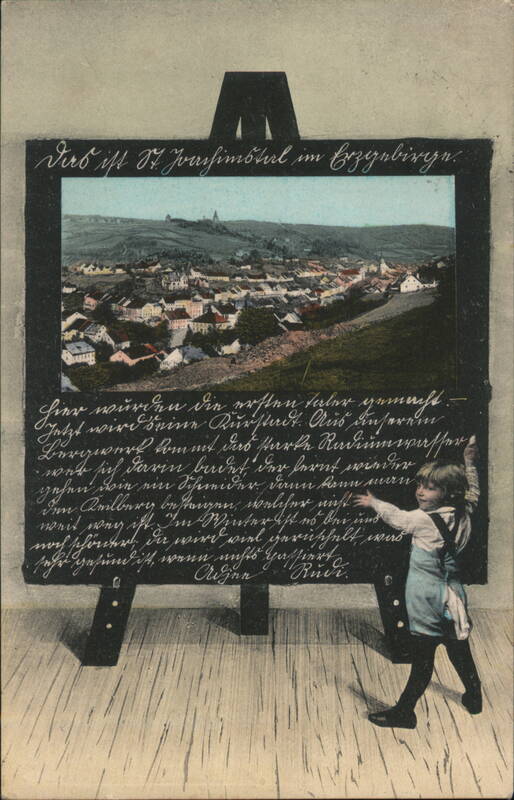 Das ist St Joachimstal im Erzgebirge.
Hier wurden die ersten taler gemacht. —
Jetzt wird seine Kurstadt. Aus unserem
Bergwerk kommt das starke Radiumwasser
wer sich darin badet, der lernt wieder
gehen wie ein Schneider, dann kann man
den Keilberg besteigen, welcher nist
weit weg ist. Im Winter ist es bei uns
noch schöner, da wird viel gerutschelt, was
sehr gesund ist, wenn nichts passiert.
Adjee Rudi.